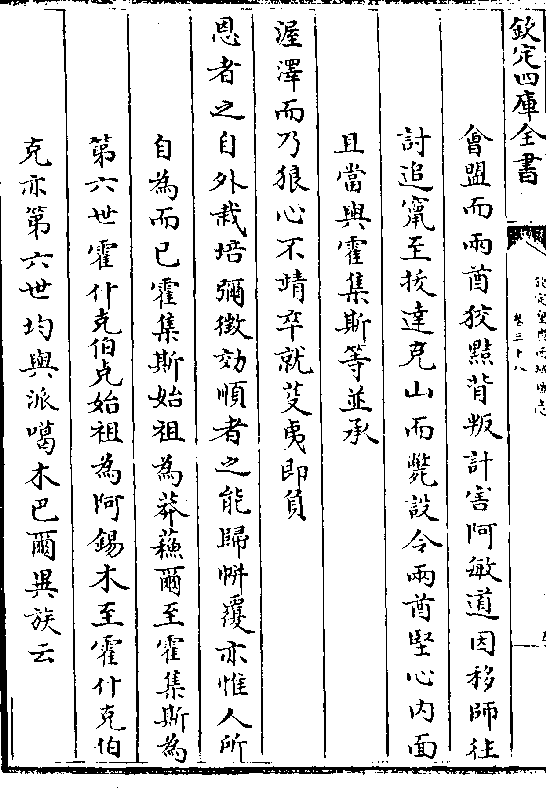 欽定四庫全書
卷三十八
會盟而兩酋狡黠背叛計害阿敏道因移師往
討追竄至拔達克山而斃設令兩酋堅心内面
且當與霍集斯等並承
渥澤而乃狼心不靖卒就芟夷即負
恩者之自外栽培彌徴効順者之能歸帡覆亦惟人所
自為而已霍集斯始祖為莽蘓爾至霍集斯為
第六世霍什克伯克始祖為阿錫木至霍什克伯
克亦第六世均與派噶木巴爾異族云